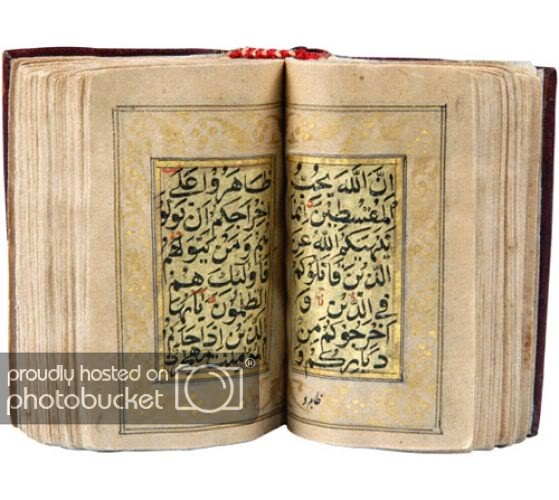 اِنَّ اللّٰهَ يُحِبُّ
الْمُقْسِطِينَ اِنَّمَا
يَنْهٰيكُمُ اللّٰهُ عَنِ
الَّذِينَ قَاتَلُوكُمْ
فِي الدِّينِ وَ
اَخْرَجُوكُمْ مِنْ
دِيَارِكُمْ وَ
ظاهروا
ظَاهَرُوا عَلٰى
اِخْرَاجِكُمْ اَنْ تَوَلَّوْ
هُمْ وَمَنْ يَتَوَلَّهُمْ
فَاُولٰئِكَ هُمُ
الظّٰلِمُونَ يٰاَيُّهَا
الَّذِينَ اِذَا جَاءَكُمُ
proudly hosted on
photobucket